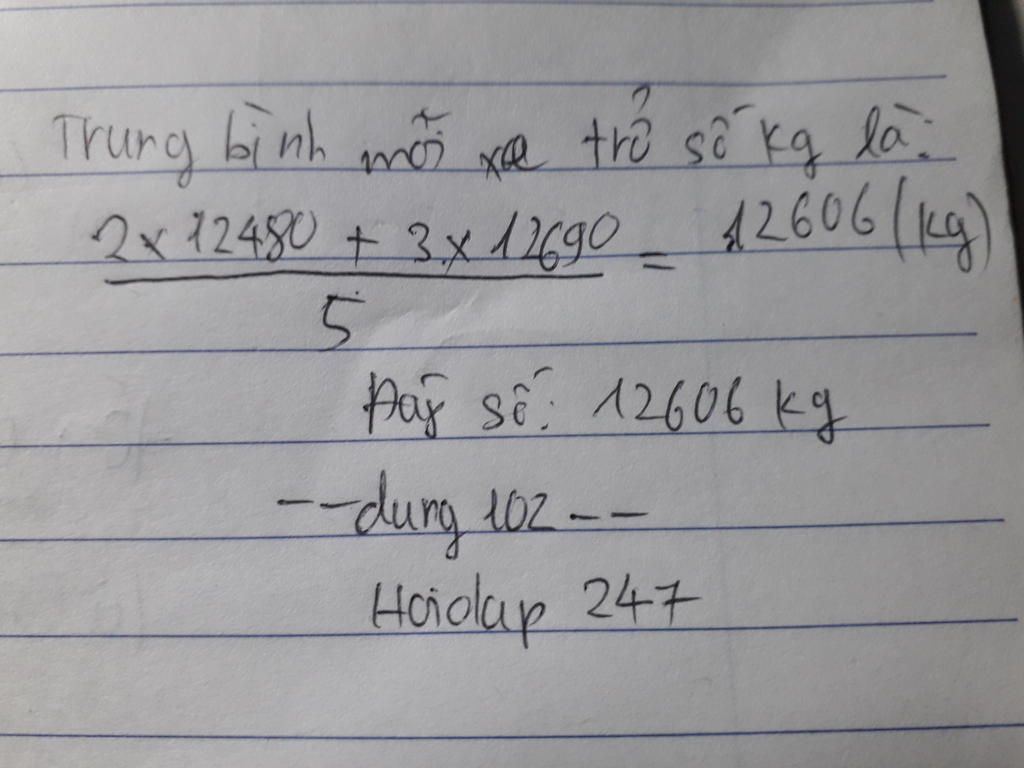 Trung bình mỗi xe trở số kg là:
2 x 12480 + 3 x 12690 = 12606 (kg)
5
Đáp số: 12606 kg
-- dung 102 --
Hoidap 247